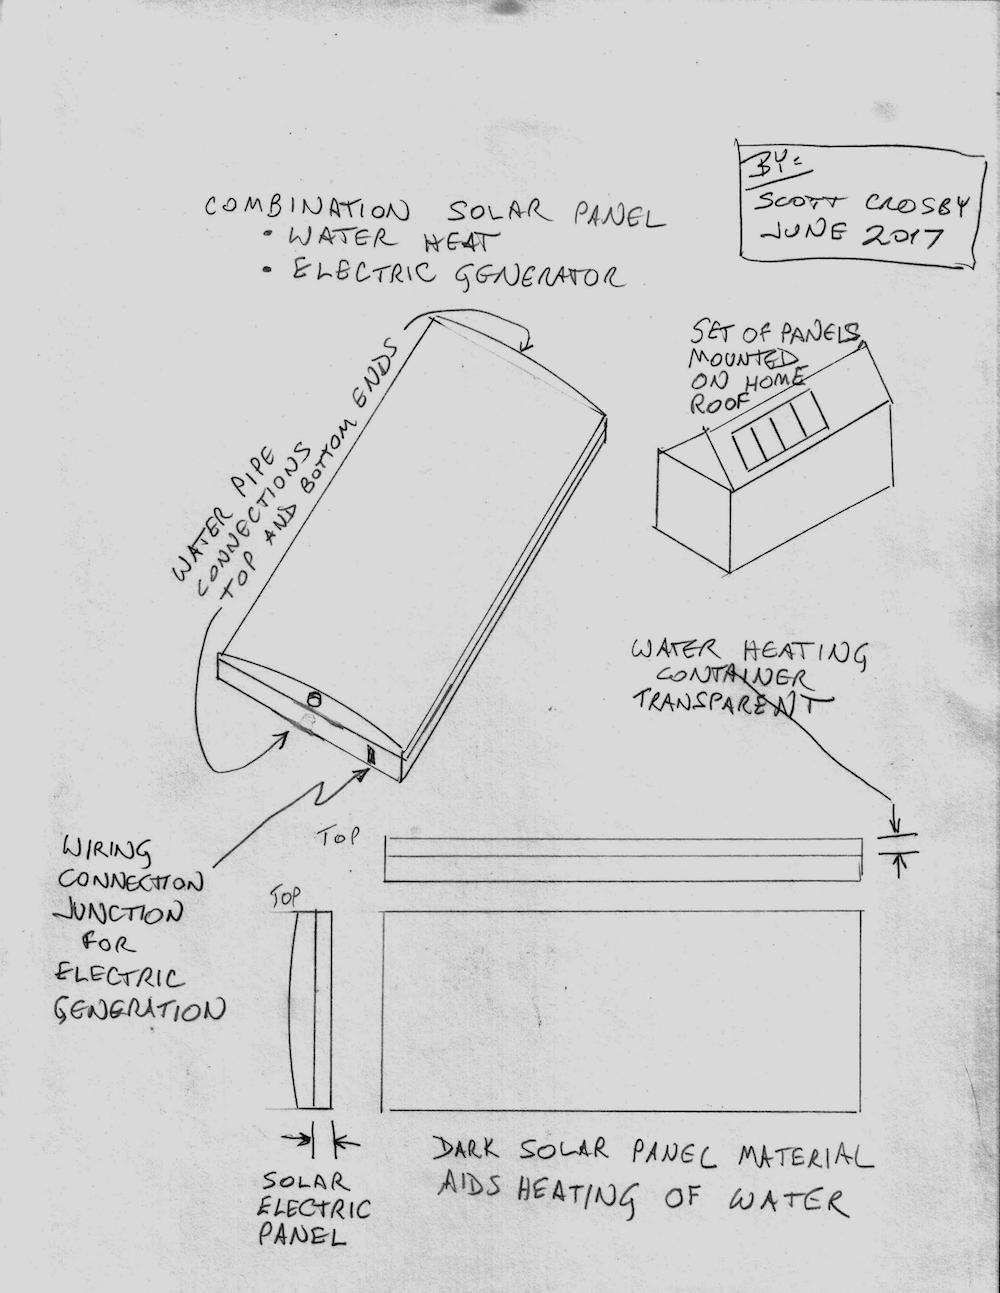 BY:
SCOTT CROSBY
JUNE 2017
COMBINATION SOLAR PANEL
• WATER HEAT
• ELECTRIC GENERATOR
SET OF PANELS
MOUNTED
ON HOME
ROOF
WATER PIPE
CONNECTIONS
TOP AND BOTTOM ENDS
WATER HEATING
CONTAINER
TRANSPARENT
TOP
WIRING
CONNECTION
JUNCTION
FOR
ELECTRIC
GENERATION
TOP
DARK SOLAR PANEL MATERIAL
AIDS HEATING OF WATER
SOLAR
ELECTRIC
PANEL